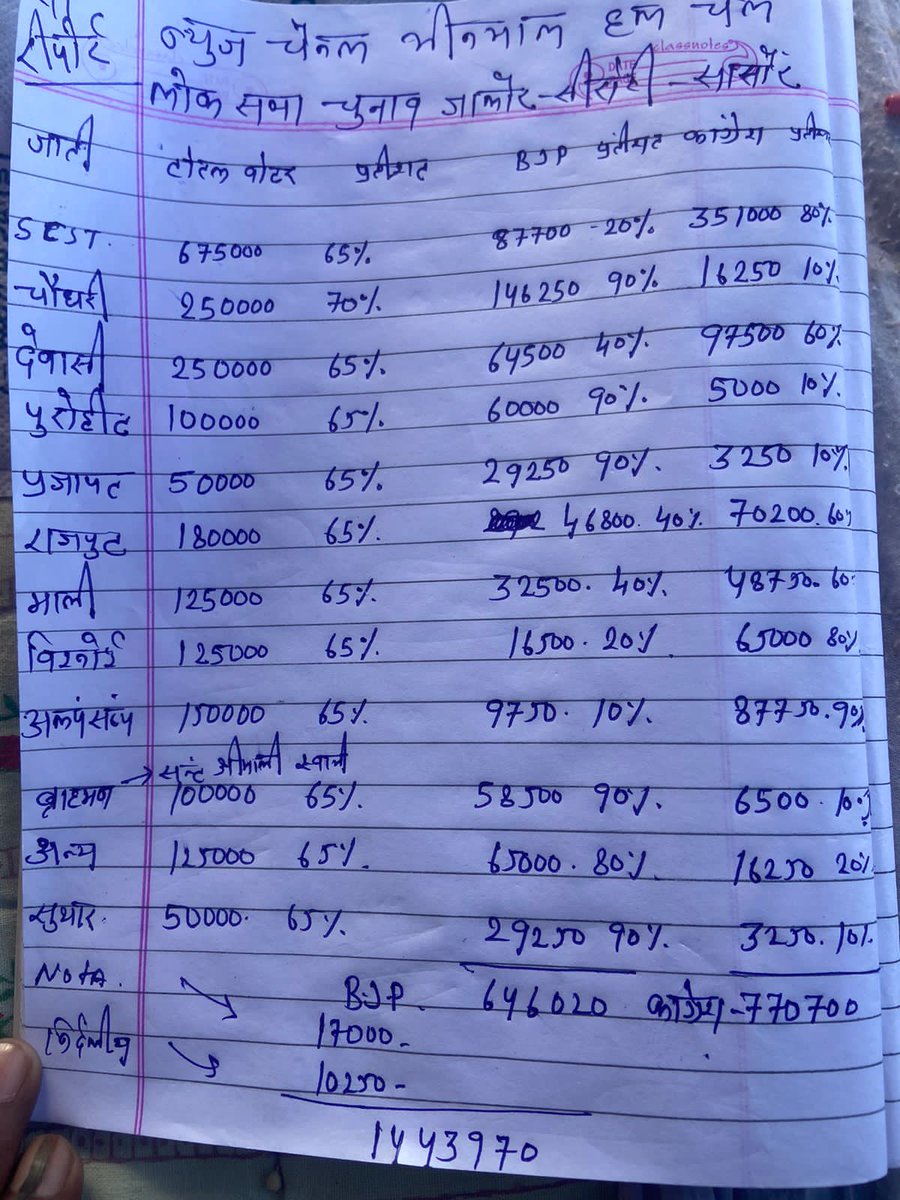 रीपोर्ट न्युज चेनल भीनमाल हल चल
classnotes
DATE
लोक सभा चुनाव जालोर-सीरोही-सांचोर
जाती टोटल वोटर प्रतीशट BJP प्रतीशट कांग्रेश
SCST. 675000 65% 87700 - 20% 351000 80%
चौधरी 250000 70% 146250 90% 16250 10%
देवासी 250000 65% 64500 40% 97500 60%
पुरोहीट 100000 65% 60000 90% 5000 10%
प्रजापट 50000 65% 29250 90% 3250 10%
राजपुट 180000 65% 46800. 40% 70200. 60%
माली 125000 65% 32500. 40% 48750. 60
विश्नोई 125000 65% 16500. 20% 65000 80%
अल्पसंख्य 150000 65% 9750. 10% 87750. 90%
श्रीमाली
ब्राहमण → 100000 65% 58500 90% 6500. 10%
अन्य 125000 65% 65000. 80% 16250 20%
सुथार. 50000. 65% 29250 90% 3250. 10%
Nota. BJP. 646020 कांग्रेश -770700
17000-
निर्दलीय 10250-
1443970